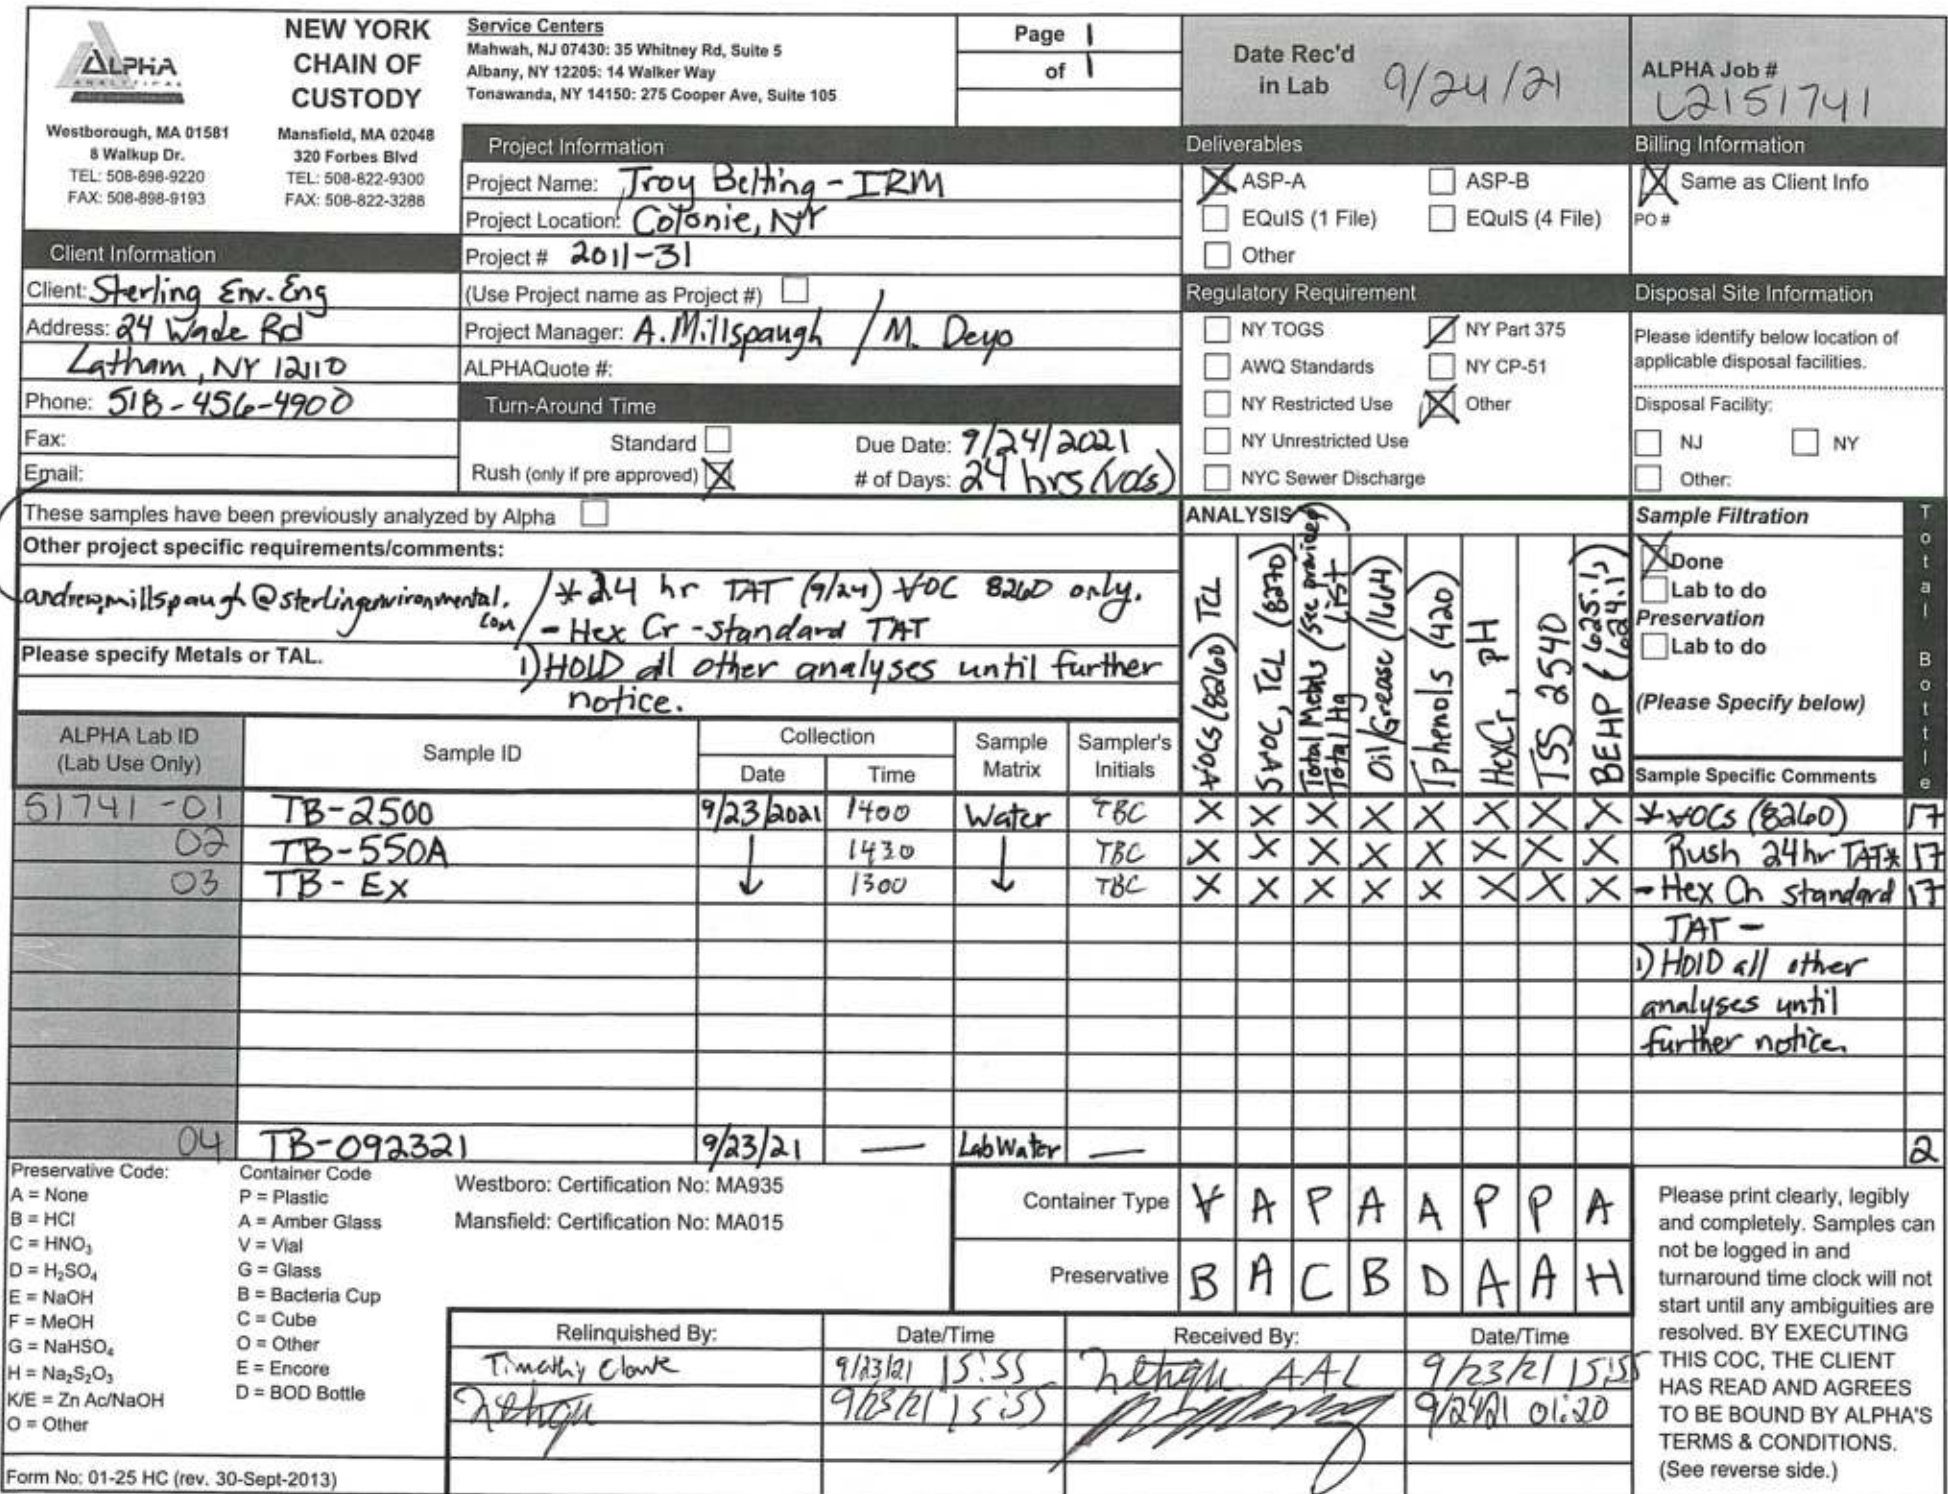 ALPHA
ANALYTICAL
Westborough, MA 01581
8 Walkup Dr.
TEL: 508-898-9220
FAX: 508-898-9193
NEW YORK
CHAIN OF
CUSTODY
Mansfield, MA 02048
320 Forbes Blvd
TEL: 508-822-9300
FAX: 508-822-3288
Service Centers
Mahwah, NJ 07430: 35 Whitney Rd, Suite 5
Albany, NY 12205: 14 Walker Way
Tonawanda, NY 14150: 275 Cooper Ave, Suite 105
Page 1
of 1
Date Rec'd
in Lab 9/24/21
ALPHA Job #
L2151741
Project Information
Project Name: Troy Belting - IRM
Project Location: Colonie, NY
Project # 2011-31
(Use Project name as Project #)
Project Manager: A. Millspaugh / M. Deyo
ALPHAQuote #:
Client Information
Client: Sterling Env. Eng
Address: 24 Wade Rd
Latham, NY 12110
Phone: 518-456-4900
Fax:
Email:
Turn-Around Time
Standard
Due Date: 9/24/2021
Rush (only if pre approved) X
# of Days: 24 hrs (VOCs)
Deliverables
X ASP-A
ASP-B
EQuIS (1 File)
EQuIS (4 File)
Other
Regulatory Requirement
NY TOGS
NY Part 375
AWQ Standards
NY CP-51
NY Restricted Use
X Other
NY Unrestricted Use
NYC Sewer Discharge
Billing Information
X Same as Client Info
PO #
Disposal Site Information
Please identify below location of
applicable disposal facilities.
Disposal Facility:
NJ
NY
Other:
These samples have been previously analyzed by Alpha
Other project specific requirements/comments:
andrew.millspaugh@sterlingenvironmental.
com
/ * 24 hr TAT (9/24) VOC 8260 only.
- Hex Cr - standard TAT
Please specify Metals or TAL.
1) HOLD all other analyses until further
notice.
ANALYSIS
VOCs (8260) TCL
SVOC, TCL (8270)
Total Metals (See provided List)
Total Hg
Oil/Grease (1664)
Tphenols (420)
HexCr, pH
TSS 2540
BEHP (625.1)
(624.1)
Sample Filtration
X Done
Lab to do
Preservation
Lab to do
(Please Specify below)
Total Bottle
ALPHA Lab ID
(Lab Use Only)
Sample ID
Collection
Date
Time
Sample
Matrix
Sampler's
Initials
Sample Specific Comments
51741-01 TB-2500 9/23/2021 1400 Water TBC X X X X X X X X *VOCs (8260) 17
02 TB-550A 1430 TBC X X X X X X X X Rush 24hr TAT* 17
03 TB-Ex 1300 TBC X X X X X X X X - Hex Ch standard 17
TAT -
1) HOLD all other
analyses until
further notice.
04 TB-092321 9/23/21 — Lab Water — 2
Preservative Code:
A = None
B = HCl
C = HNO₃
D = H₂SO₄
E = NaOH
F = MeOH
G = NaHSO₄
H = Na₂S₂O₃
K/E = Zn Ac/NaOH
O = Other
Container Code
P = Plastic
A = Amber Glass
V = Vial
G = Glass
B = Bacteria Cup
C = Cube
O = Other
E = Encore
D = BOD Bottle
Westboro: Certification No: MA935
Mansfield: Certification No: MA015
Container Type V A P A A P P A
Preservative B A C B D A A H
Relinquished By:
Date/Time
Received By:
Date/Time
Timothy Clark 9/23/21 15:55 AAL 9/23/21 15:55
9/23/21 15:55 9/24/21 01:20
Please print clearly, legibly
and completely. Samples can
not be logged in and
turnaround time clock will not
start until any ambiguities are
resolved. BY EXECUTING
THIS COC, THE CLIENT
HAS READ AND AGREES
TO BE BOUND BY ALPHA'S
TERMS & CONDITIONS.
(See reverse side.)
Form No: 01-25 HC (rev. 30-Sept-2013)